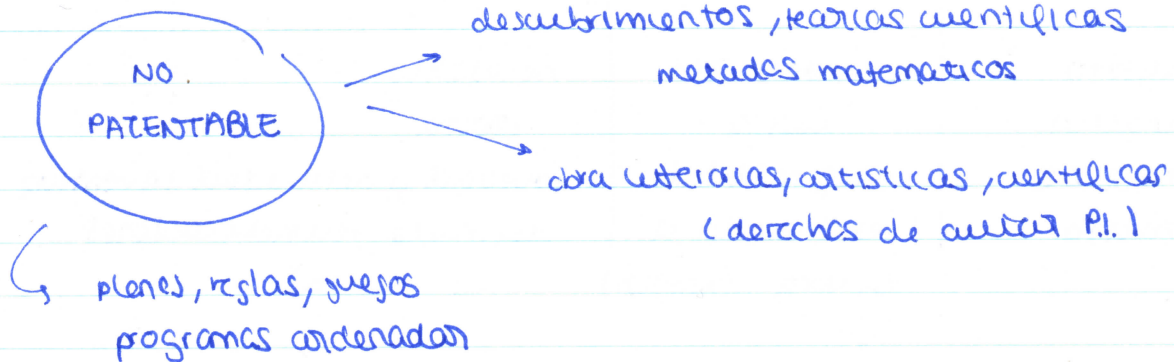 NO
PATENTABLE
descubrimientos, teorias cientificas
metodos matematicos
obra literarias, artisticas, cientificas
(derechos de autor P.I.)
planes, reglas, juegos
programas ordenador